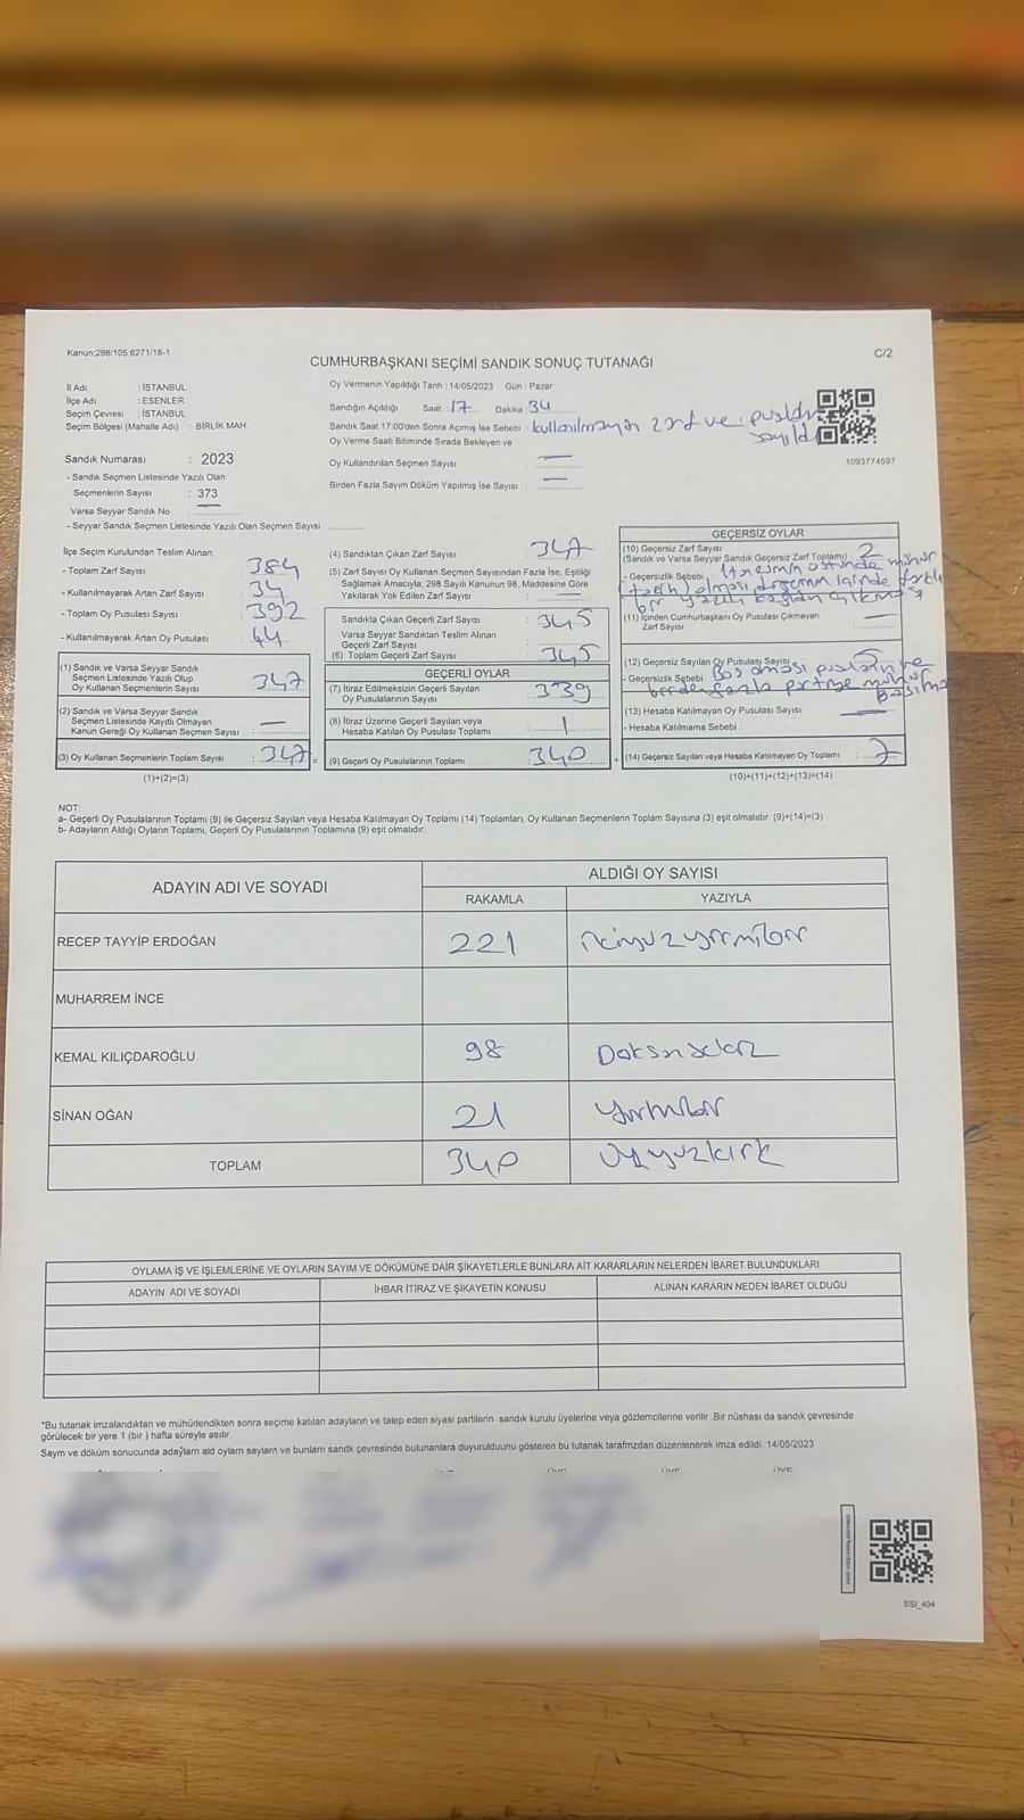 Kanun:298/105 6271/18-1
C/2
CUMHURBAŞKANI SEÇİMİ SANDIK SONUÇ TUTANAĞI
İl Adı : İSTANBUL
İlçe Adı : ESENLER
Seçim Çevresi : İSTANBUL
Seçim Bölgesi (Mahalle Adı) : BİRLİK MAH
Sandık Numarası : 2023
- Sandık Seçmen Listesinde Yazılı Olan
Seçmenlerin Sayısı : 373
Varsa Seyyar Sandık No
- Seyyar Sandık Seçmen Listesinde Yazılı Olan Seçmen Sayısı
Oy Vermenin Yapıldığı Tarih : 14/05/2023 Gün : Pazar
Sandığın Açıldığı Saat 17 Dakika 34
Sandık Saat 17:00'den Sonra Açılmış İse Sebebi : kullanılmayan zarf ve pusula
sayıldı
Oy Verme Saati Bitiminde Sırada Bekleyen ve
Oy Kullandırılan Seçmen Sayısı —
Birden Fazla Sayım Döküm Yapılmış İse Sayısı —
1093774597
İlçe Seçim Kurulundan Teslim Alınan:
- Toplam Zarf Sayısı 384
- Kullanılmayarak Artan Zarf Sayısı 34
- Toplam Oy Pusulası Sayısı 392
- Kullanılmayarak Artan Oy Pusulası 44
(1) Sandık ve Varsa Seyyar Sandık
Seçmen Listesinde Yazılı Olup
Oy Kullanan Seçmenlerin Sayısı : 347
(2) Sandık ve Varsa Seyyar Sandık
Seçmen Listesinde Kayıtlı Olmayan
Kanun Gereği Oy Kullanan Seçmen Sayısı : —
(3) Oy Kullanan Seçmenlerin Toplam Sayısı : 347
(1)+(2)=(3)
(4) Sandıktan Çıkan Zarf Sayısı 347
(5) Zarf Sayısı Oy Kullanan Seçmen Sayısından Fazla İse, Eşitliği
Sağlamak Amacıyla, 298 Sayılı Kanunun 98. Maddesine Göre
Yakılarak Yok Edilen Zarf Sayısı —
Sandıkta Çıkan Geçerli Zarf Sayısı : 345
Varsa Seyyar Sandıktan Teslim Alınan
Geçerli Zarf Sayısı
(6) Toplam Geçerli Zarf Sayısı 345
GEÇERLİ OYLAR
(7) İtiraz Edilmeksizin Geçerli Sayılan
Oy Pusulalarının Sayısı : 339
(8) İtiraz Üzerine Geçerli Sayılan veya
Hesaba Katılan Oy Pusulası Toplamı : 1
(9) Geçerli Oy Pusulalarının Toplamı : 340
GEÇERSİZ OYLAR
(10) Geçersiz Zarf Sayısı
(Sandık ve Varsa Seyyar Sandık Geçersiz Zarf Toplamı) 2
- Geçersizlik Sebebi üstünde mühür
olması içinde farklı
bir
(11) İçinden Cumhurbaşkanı Oy Pusulası Çıkmayan
Zarf Sayısı —
(12) Geçersiz Sayılan Oy Pusulası Sayısı 5
- Geçersizlik Sebebi Boş olması ve
birden fazla partiye mühür
basılması
(13) Hesaba Katılmayan Oy Pusulası Sayısı —
- Hesaba Katılmama Sebebi
(14) Geçersiz Sayılan veya Hesaba Katılmayan Oy Toplamı 7
(10)+(11)+(12)+(13)=(14)
NOT:
a- Geçerli Oy Pusulalarının Toplamı (9) ile Geçersiz Sayılan veya Hesaba Katılmayan Oy Toplamı (14) Toplamları, Oy Kullanan Seçmenlerin Toplam Sayısına (3) eşit olmalıdır. (9)+(14)=(3)
b- Adayların Aldığı Oyların Toplamı, Geçerli Oy Pusulalarının Toplamına (9) eşit olmalıdır.
ADAYIN ADI VE SOYADI
ALDIĞI OY SAYISI
RAKAMLA YAZIYLA
RECEP TAYYİP ERDOĞAN 221 ikiyüzyirmibir
MUHARREM İNCE
KEMAL KILIÇDAROĞLU 98 Doksansekiz
SİNAN OĞAN 21 yirmibir
TOPLAM 340 Üçyüzkırk
OYLAMA İŞ VE İŞLEMLERİNE VE OYLARIN SAYIM VE DÖKÜMÜNE DAİR ŞİKAYETLERLE BUNLARA AİT KARARLARIN NELERDEN İBARET BULUNDUKLARI
ADAYIN ADI VE SOYADI İHBAR İTİRAZ VE ŞİKAYETİN KONUSU ALINAN KARARIN NEDEN İBARET OLDUĞU
*Bu tutanak imzalandıktan ve mühürlendikten sonra seçime katılan adayların ve talep eden siyasi partilerin sandık kurulu üyelerine veya gözlemcilerine verilir. Bir nüshası da sandık çevresinde
görülecek bir yere 1 (bir ) hafta süreyle asılır.
Sayım ve döküm sonucunda adayların aldığı oyların sayılarını ve bunların sandık çevresinde bulunanlara duyurulduğunu gösteren bu tutanak tarafımızdan düzenlenerek imza edildi. 14/05/2023